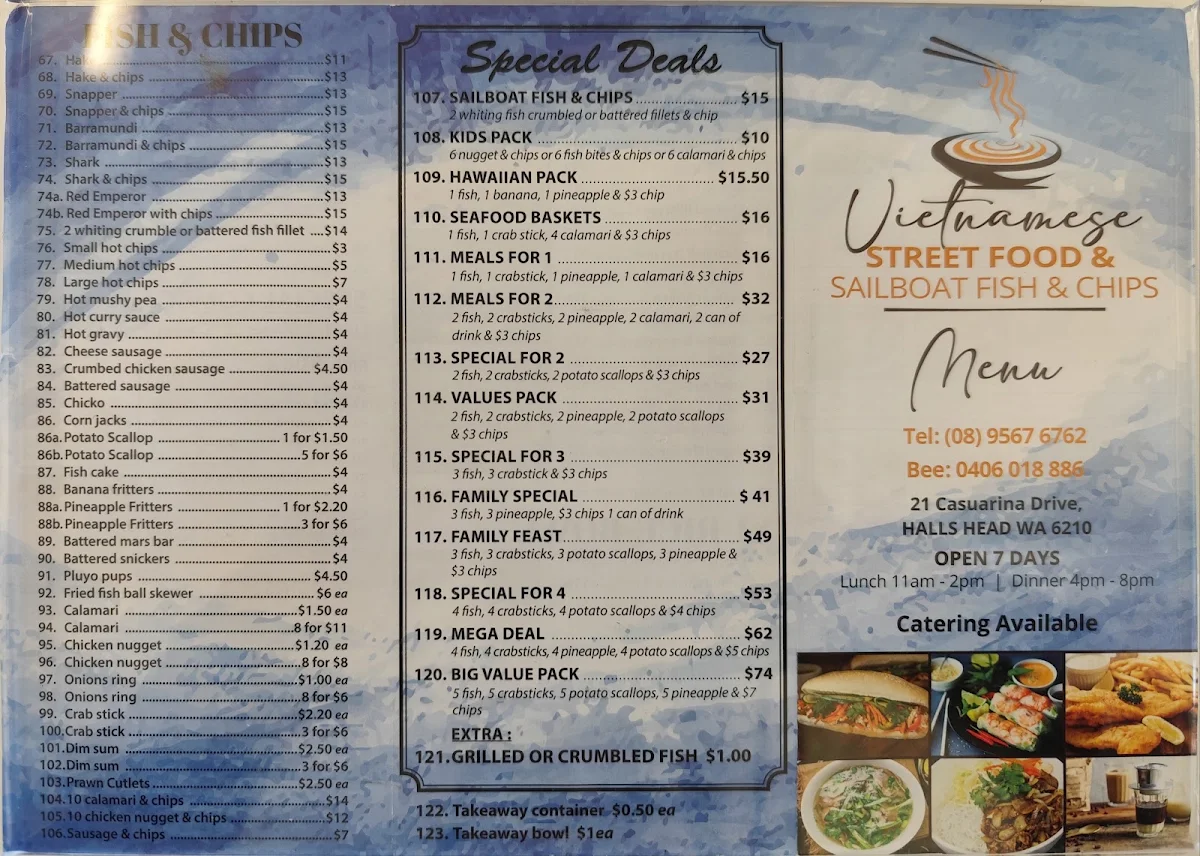 FISH & CHIPS
67. Hake ... $11
68. Hake & chips ... $13
69. Snapper ... $13
70. Snapper & chips ... $15
71. Barramundi ... $13
72. Barramundi & chips ... $15
73. Shark ... $13
74. Shark & chips ... $15
74a. Red Emperor ... $13
74b. Red Emperor with chips ... $15
75. 2 whiting crumble or battered fish fillet .... $14
76. Small hot chips ... $3
77. Medium hot chips ... $5
78. Large hot chips ... $7
79. Hot mushy pea ... $4
80. Hot curry sauce ... $4
81. Hot gravy ... $4
82. Cheese sausage ... $4
83. Crumbed chicken sausage ... $4.50
84. Battered sausage ... $4
85. Chicko ... $4
86. Corn jacks ... $4
86a. Potato Scallop ... 1 for $1.50
86b. Potato Scallop ... 5 for $6
87. Fish cake ... $4
88. Banana fritters ... $4
88a. Pineapple Fritters ... 1 for $2.20
88b. Pineapple Fritters ... 3 for $6
89. Battered mars bar ... $4
90. Battered snickers ... $4
91. Pluyo pups ... $4.50
92. Fried fish ball skewer ... $6 ea
93. Calamari ... $1.50 ea
94. Calamari ... 8 for $11
95. Chicken nugget ... $1.20 ea
96. Chicken nugget ... 8 for $8
97. Onions ring ... $1.00 ea
98. Onions ring ... 8 for $6
99. Crab stick ... $2.20 ea
100. Crab stick ... 3 for $6
101. Dim sum ... $2.50 ea
102. Dim sum ... 3 for $6
103. Prawn Cutlets ... $2.50 ea
104. 10 calamari & chips ... $14
105. 10 chicken nugget & chips ... $12
106. Sausage & chips ... $7
Special Deals
107. SAILBOAT FISH & CHIPS ... $15
2 whiting fish crumbled or battered fillets & chip
108. KIDS PACK ... $10
6 nugget & chips or 6 fish bites & chips or 6 calamari & chips
109. HAWAIIAN PACK ... $15.50
1 fish, 1 banana, 1 pineapple & $3 chip
110. SEAFOOD BASKETS ... $16
1 fish, 1 crab stick, 4 calamari & $3 chips
111. MEALS FOR 1 ... $16
1 fish, 1 crabstick, 1 pineapple, 1 calamari & $3 chips
112. MEALS FOR 2 ... $32
2 fish, 2 crabsticks, 2 pineapple, 2 calamari, 2 can of
drink & $3 chips
113. SPECIAL FOR 2 ... $27
2 fish, 2 crabsticks, 2 potato scallops & $3 chips
114. VALUES PACK ... $31
2 fish, 2 crabsticks, 2 pineapple, 2 potato scallops
& $3 chips
115. SPECIAL FOR 3 ... $39
3 fish, 3 crabstick & $3 chips
116. FAMILY SPECIAL ... $ 41
3 fish, 3 pineapple, $3 chips 1 can of drink
117. FAMILY FEAST ... $49
3 fish, 3 crabsticks, 3 potato scallops, 3 pineapple &
$3 chips
118. SPECIAL FOR 4 ... $53
4 fish, 4 crabsticks, 4 potato scallops & $4 chips
119. MEGA DEAL ... $62
4 fish, 4 crabsticks, 4 pineapple, 4 potato scallops & $5 chips
120. BIG VALUE PACK ... $74
5 fish, 5 crabsticks, 5 potato scallops, 5 pineapple & $7
chips
EXTRA :
121. GRILLED OR CRUMBLED FISH $1.00
122. Takeaway container $0.50 ea
123. Takeaway bowl $1ea
Vietnamese
STREET FOOD &
SAILBOAT FISH & CHIPS
Menu
Tel: (08) 9567 6762
Bee: 0406 018 886
21 Casuarina Drive,
HALLS HEAD WA 6210
OPEN 7 DAYS
Lunch 11am - 2pm | Dinner 4pm - 8pm
Catering Available